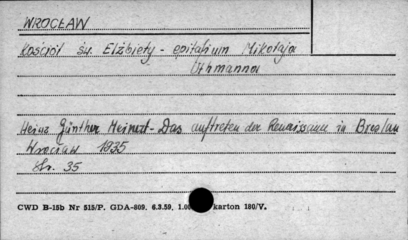 WROCŁAW
Kościół św. Elżbiety - epitafium Mikołaja
Uthmanna
Heinz Günther Meinert - Das auftreten der Renaissance in Breslau
Wrocław 1935
Str. 35
CWD B-15b Nr 515/P. GDA-809. 6.3.59. 1.00 karton 180/V.